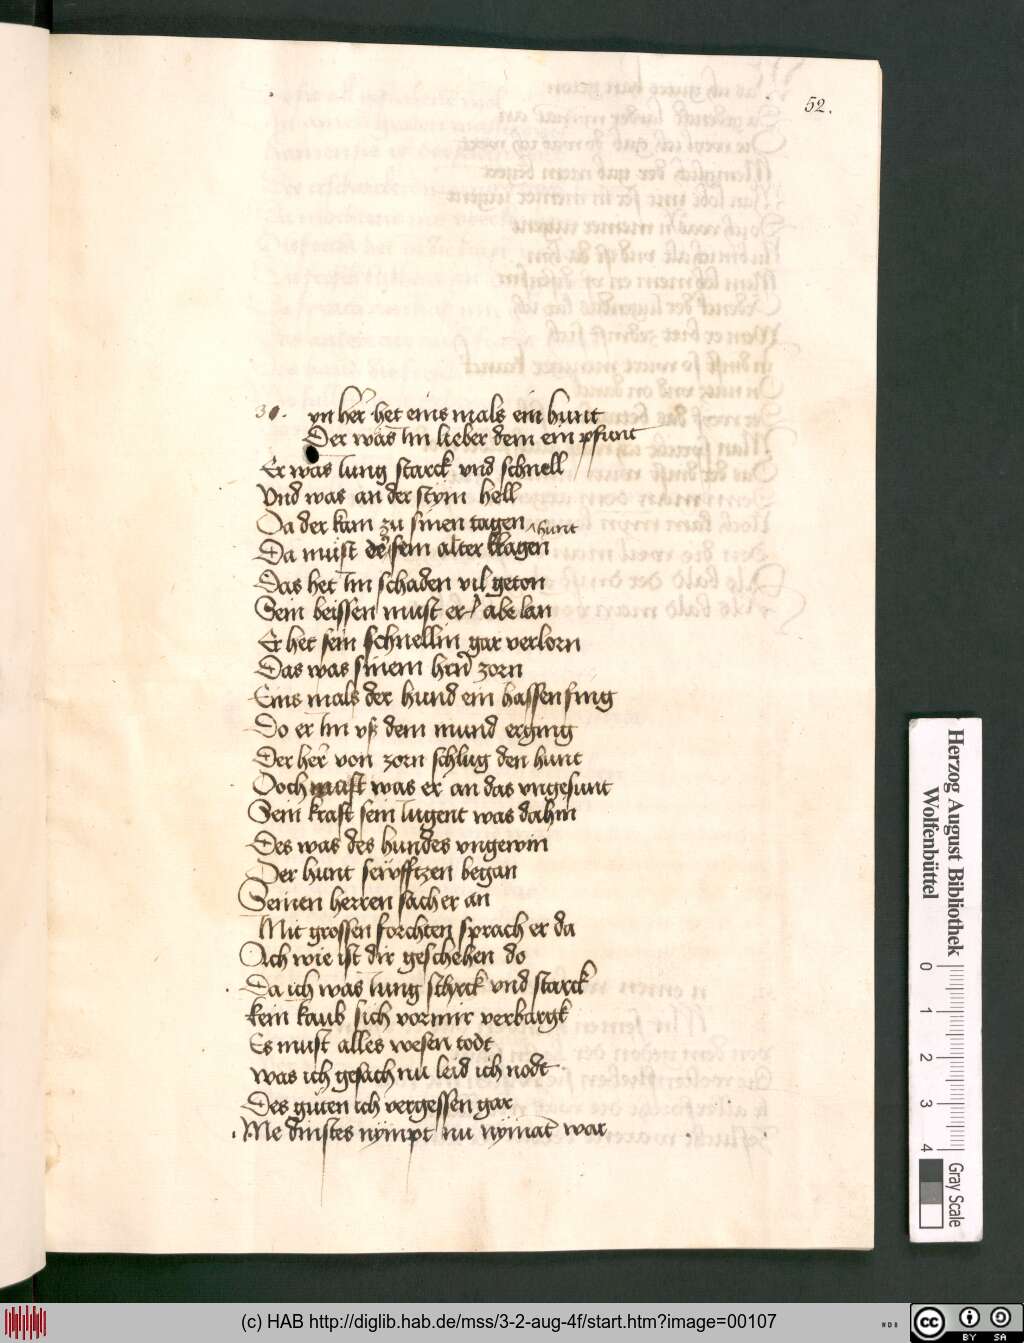 52.
30. yn her het eins mals ein hunt
Der was im lieber dem ein pfunt
Er was iung starck vnd schnell
Vnd was an der stym hell
Da der kam zu sinen tagen hunt
Da must der sein alter klagen
Das het im schaden vil geton
Sein beissen must er abe lan
Er het sein schnellin gar verlorn
Das was sinem hern zorn
Eins mals der hund ein hassen fing
Do er im vß dem mund erging
Der her von zorn schlug den hunt
Doch must was er an das vngesunt
Sein kraft sein iugent was dahin
Des was des hundes vngewin
Der hunt seüfftzen began
Seinen herren sach er an
Mit grossen forchten sprach er da
Ach wie ist dir geschehen do
Da ich was iung schrck vnd starck
kein kaub sich vor mir verbargk
Es must alles wesen todt
was ich gesach nu leid ich nodt
Des guten ich vergessen gar
Me dinstes nympt nu nymat war
Herzog August Bibliothek
Wolfenbüttel
0 1 2 3 4
Gray Scale
(c) HAB http://diglib.hab.de/mss/3-2-aug-4f/start.htm?image=00107
cc BY SA